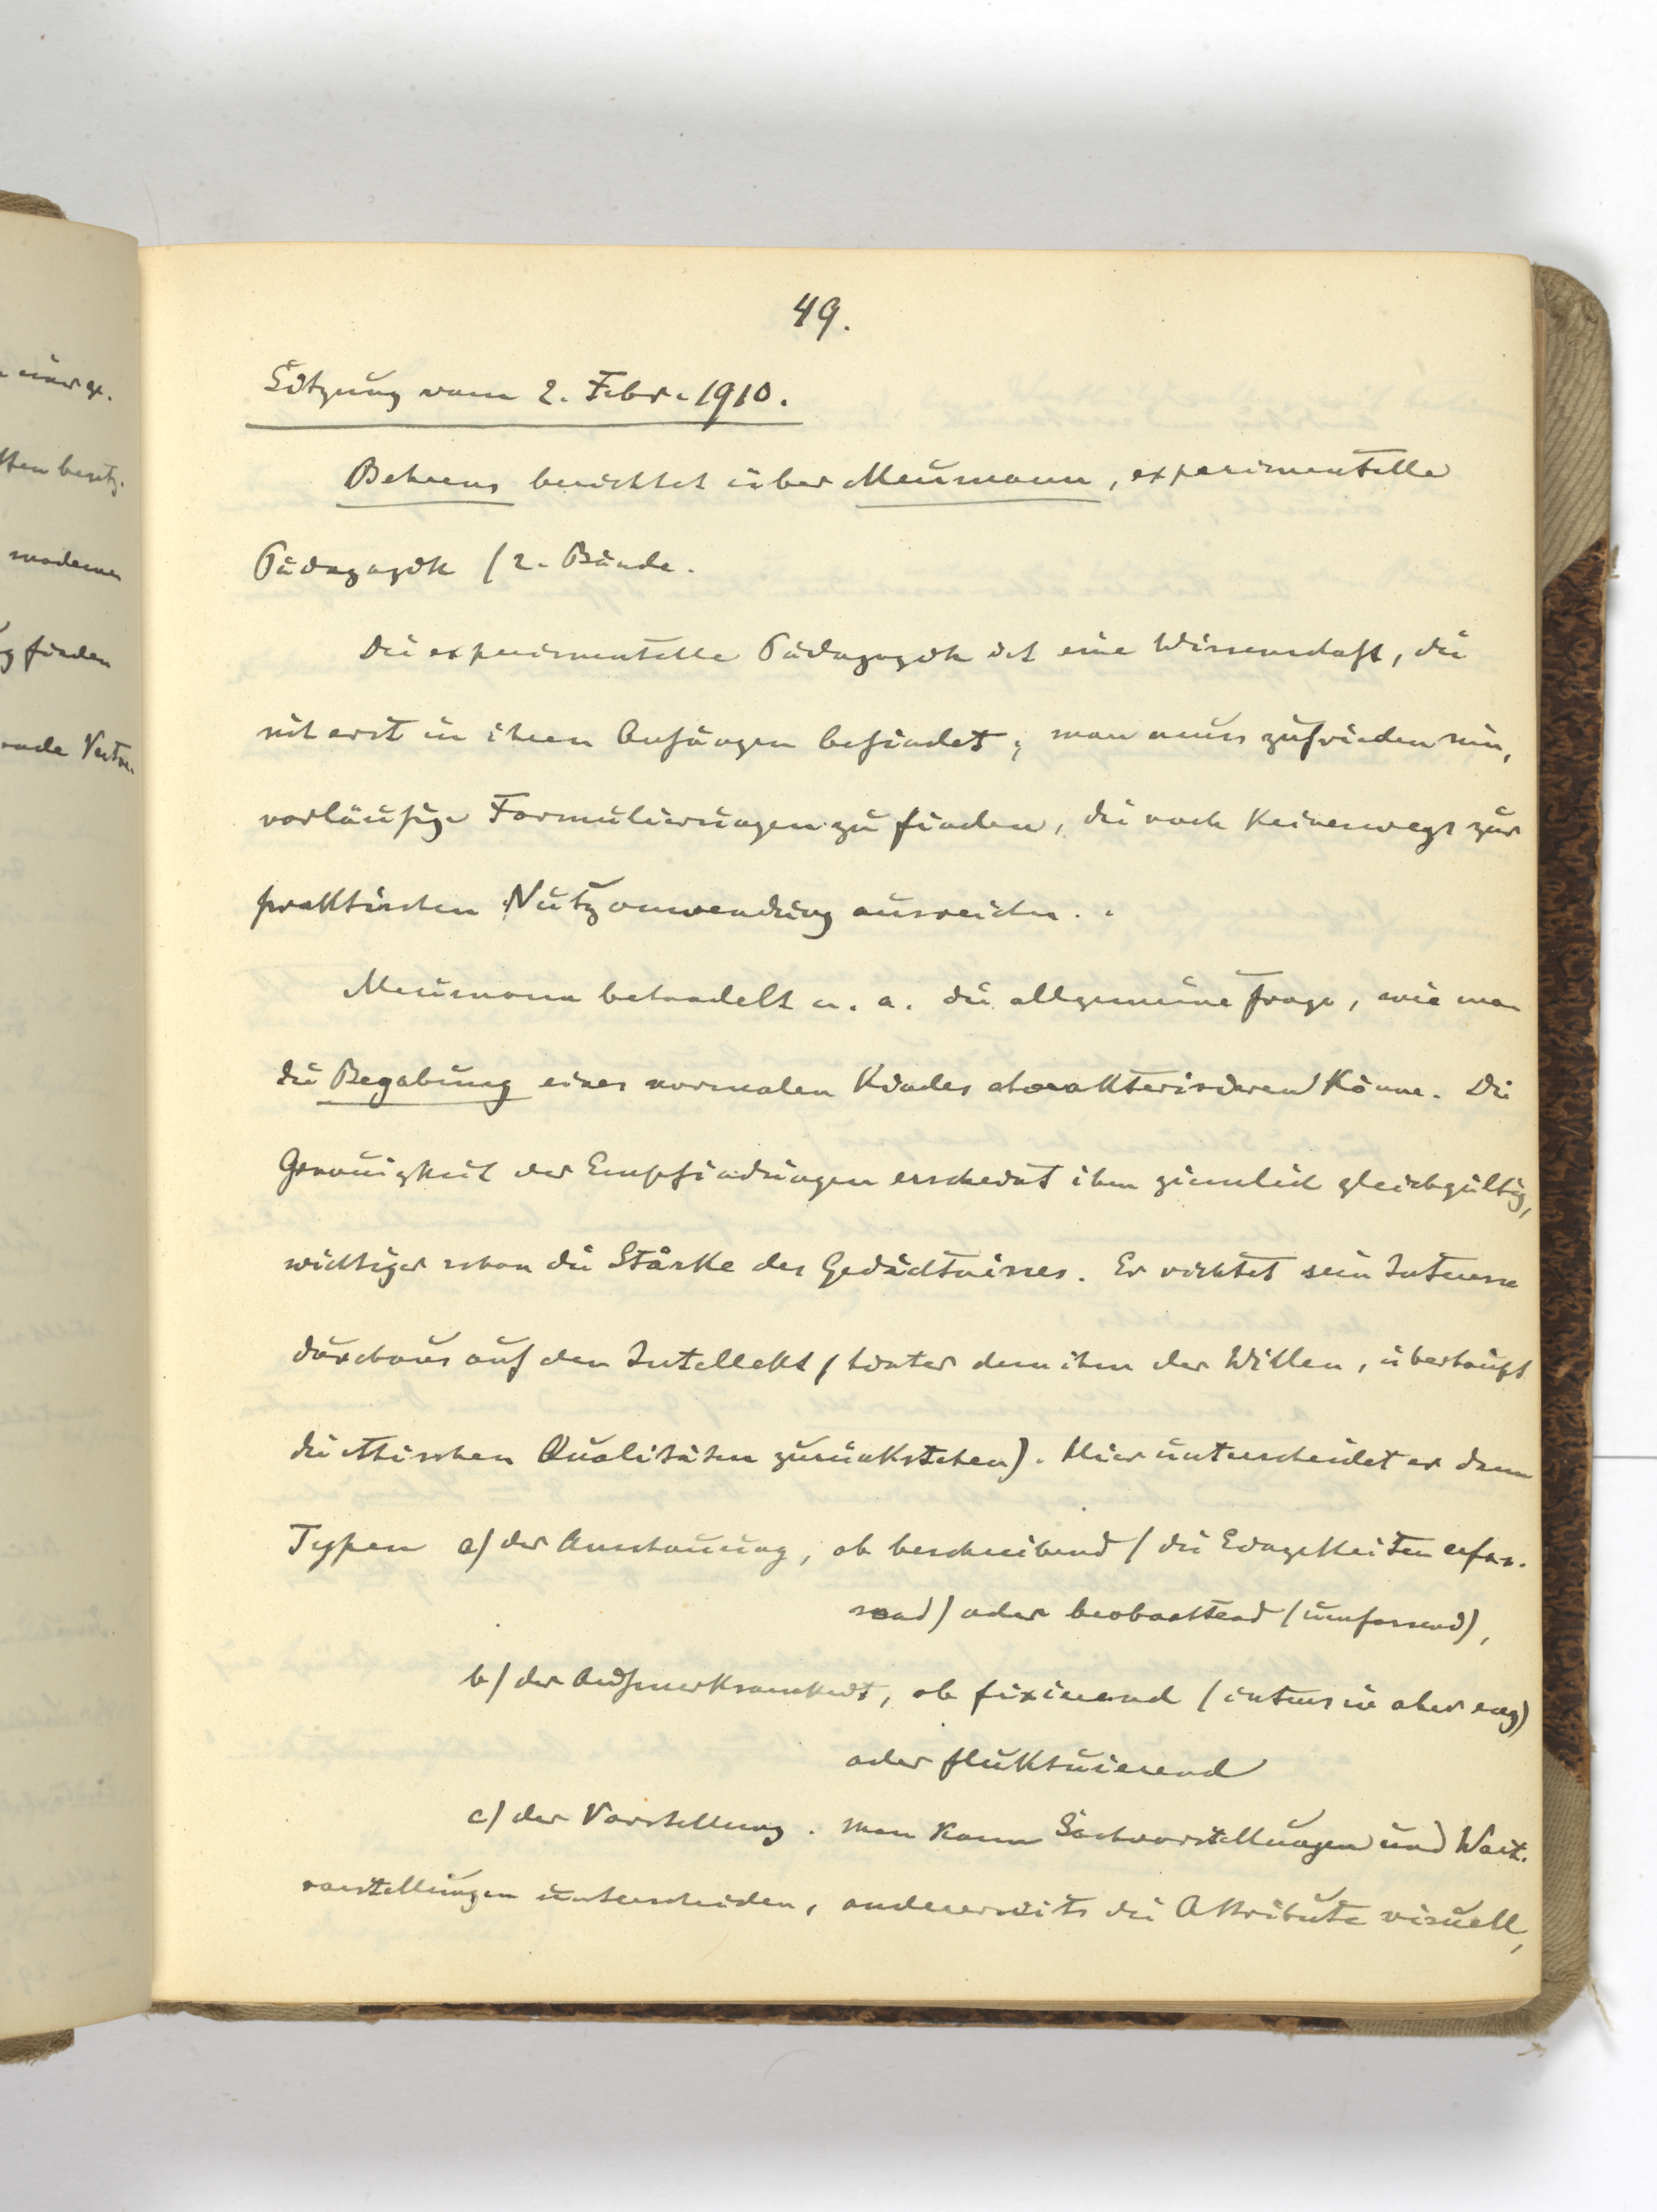 49.
Sitzung vom 2. Febr. 1910.
Behrens berichtet über Meumann, experimentelle
Pädagogik (2. Bände.
Die experimentelle Pädagogik ist eine Wissenschaft, die
sich erst in ihren Anfängen befindet; man muss zufrieden sein,
vorläufige Formulierungen zu finden, die noch keineswegs zur
praktischen Nutzanwendung ausreichen.
Meumann behandelt u. a. die allgemeine Frage, wie man
die Begabung eines normalen Kindes charakterisieren könne. Die
Genauigkeit der Empfindungen erscheint ihm ziemlich gleichgültig,
wichtiger schon die Stärke des Gedächtnisses. Er richtet sein Interesse
durchaus auf den Intellekt (hinter dem ihm der Willen, überhaupt
die ethischen Qualitäten zurückstehen). Hier unterscheidet er dann
Typen a) der Anschauung, ob beschreibend (die Einzelheiten erfas-
send) oder beobachtend (umfassend),
b) der Aufmerksamkeit, ob fixierend (intensiv aber eng)
oder fluktuierend
c) der Vorstellung. Man kann Sachvorstellungen und Wort-
vorstellungen unterscheiden, andererseits die Attribute visuell,
einer ex.
besitz.
moderner
finden